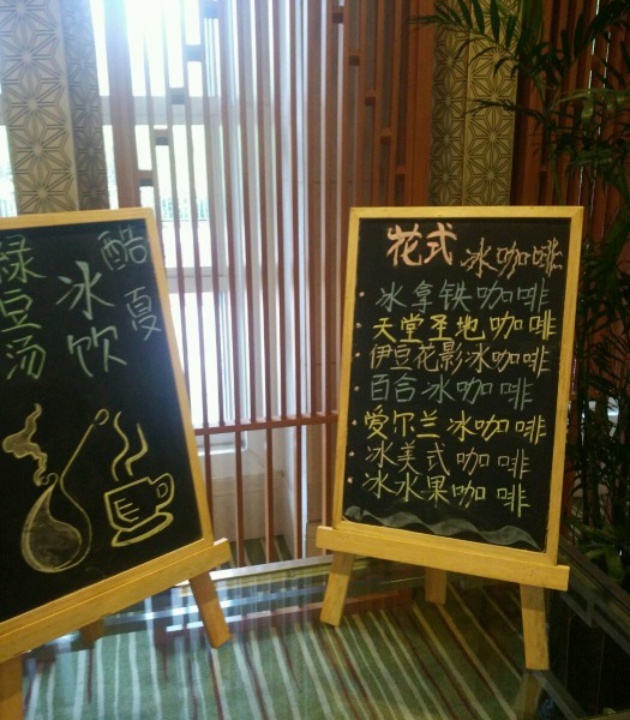 酷夏
冰饮
緑豆汤
花式冰咖啡
冰拿铁咖啡
天堂圣地咖啡
伊豆花影冰咖啡
百合冰咖啡
爱尔兰冰咖啡
冰美式咖啡
冰水果咖啡